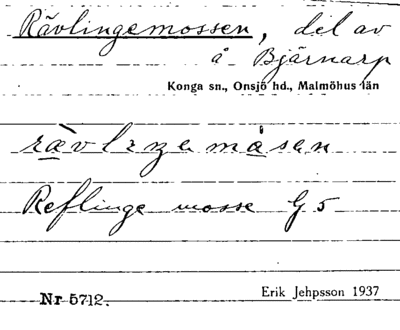 Rävlingemossen, del av
å Bjärnarp
Konga sn., Onsjö hd., Malmöhus län
Reflinge mosse G 5
Nr 5712.
Erik Jehpsson 1937